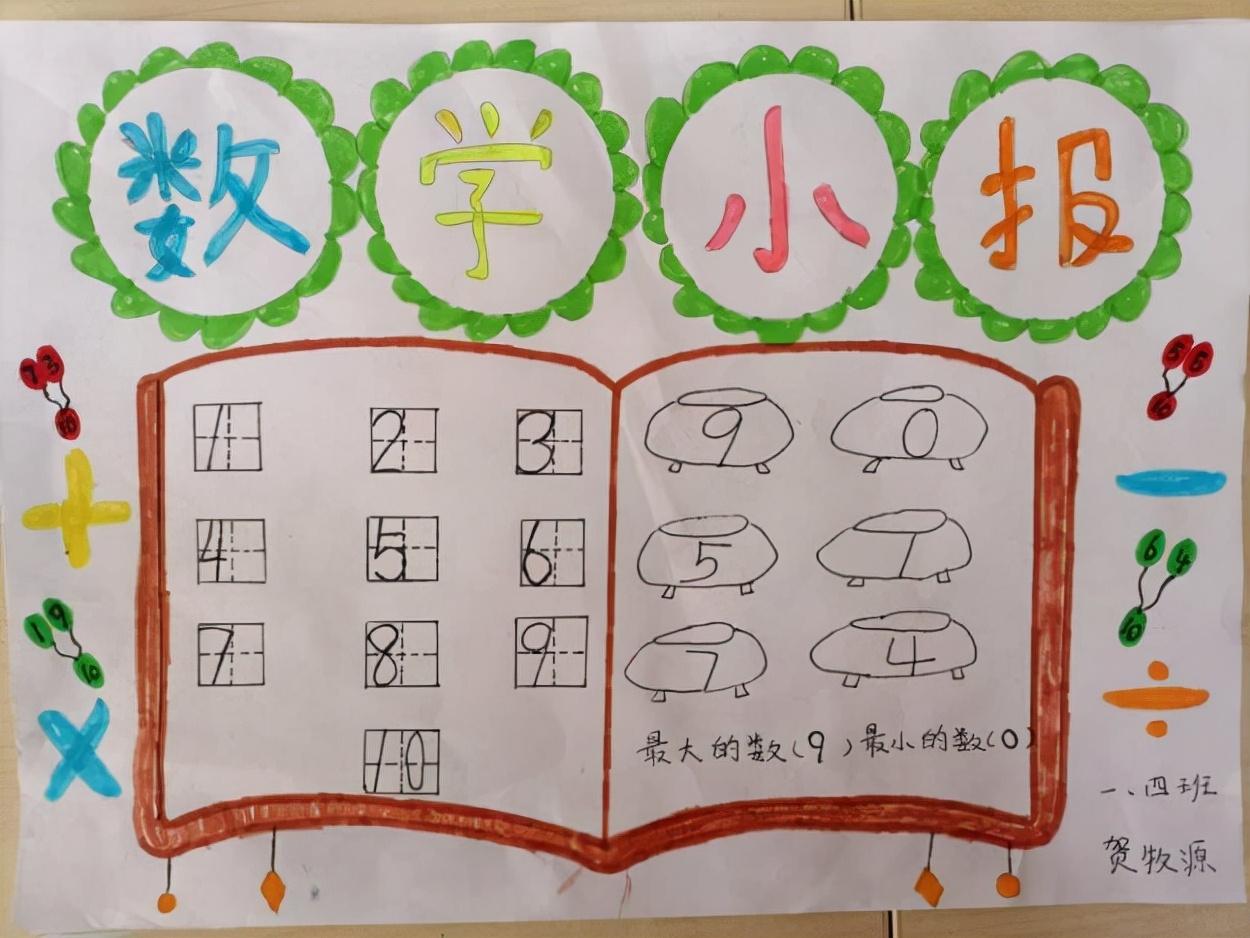 数学小报
7 3
10
+
1 9
10
×
1 2 3
4 5 6
7 8 9
10
9 0
5 1
7 4
最大的数(9)最小的数(0)
5 5
10
−
6 4
10
÷
一、四班
贺牧源